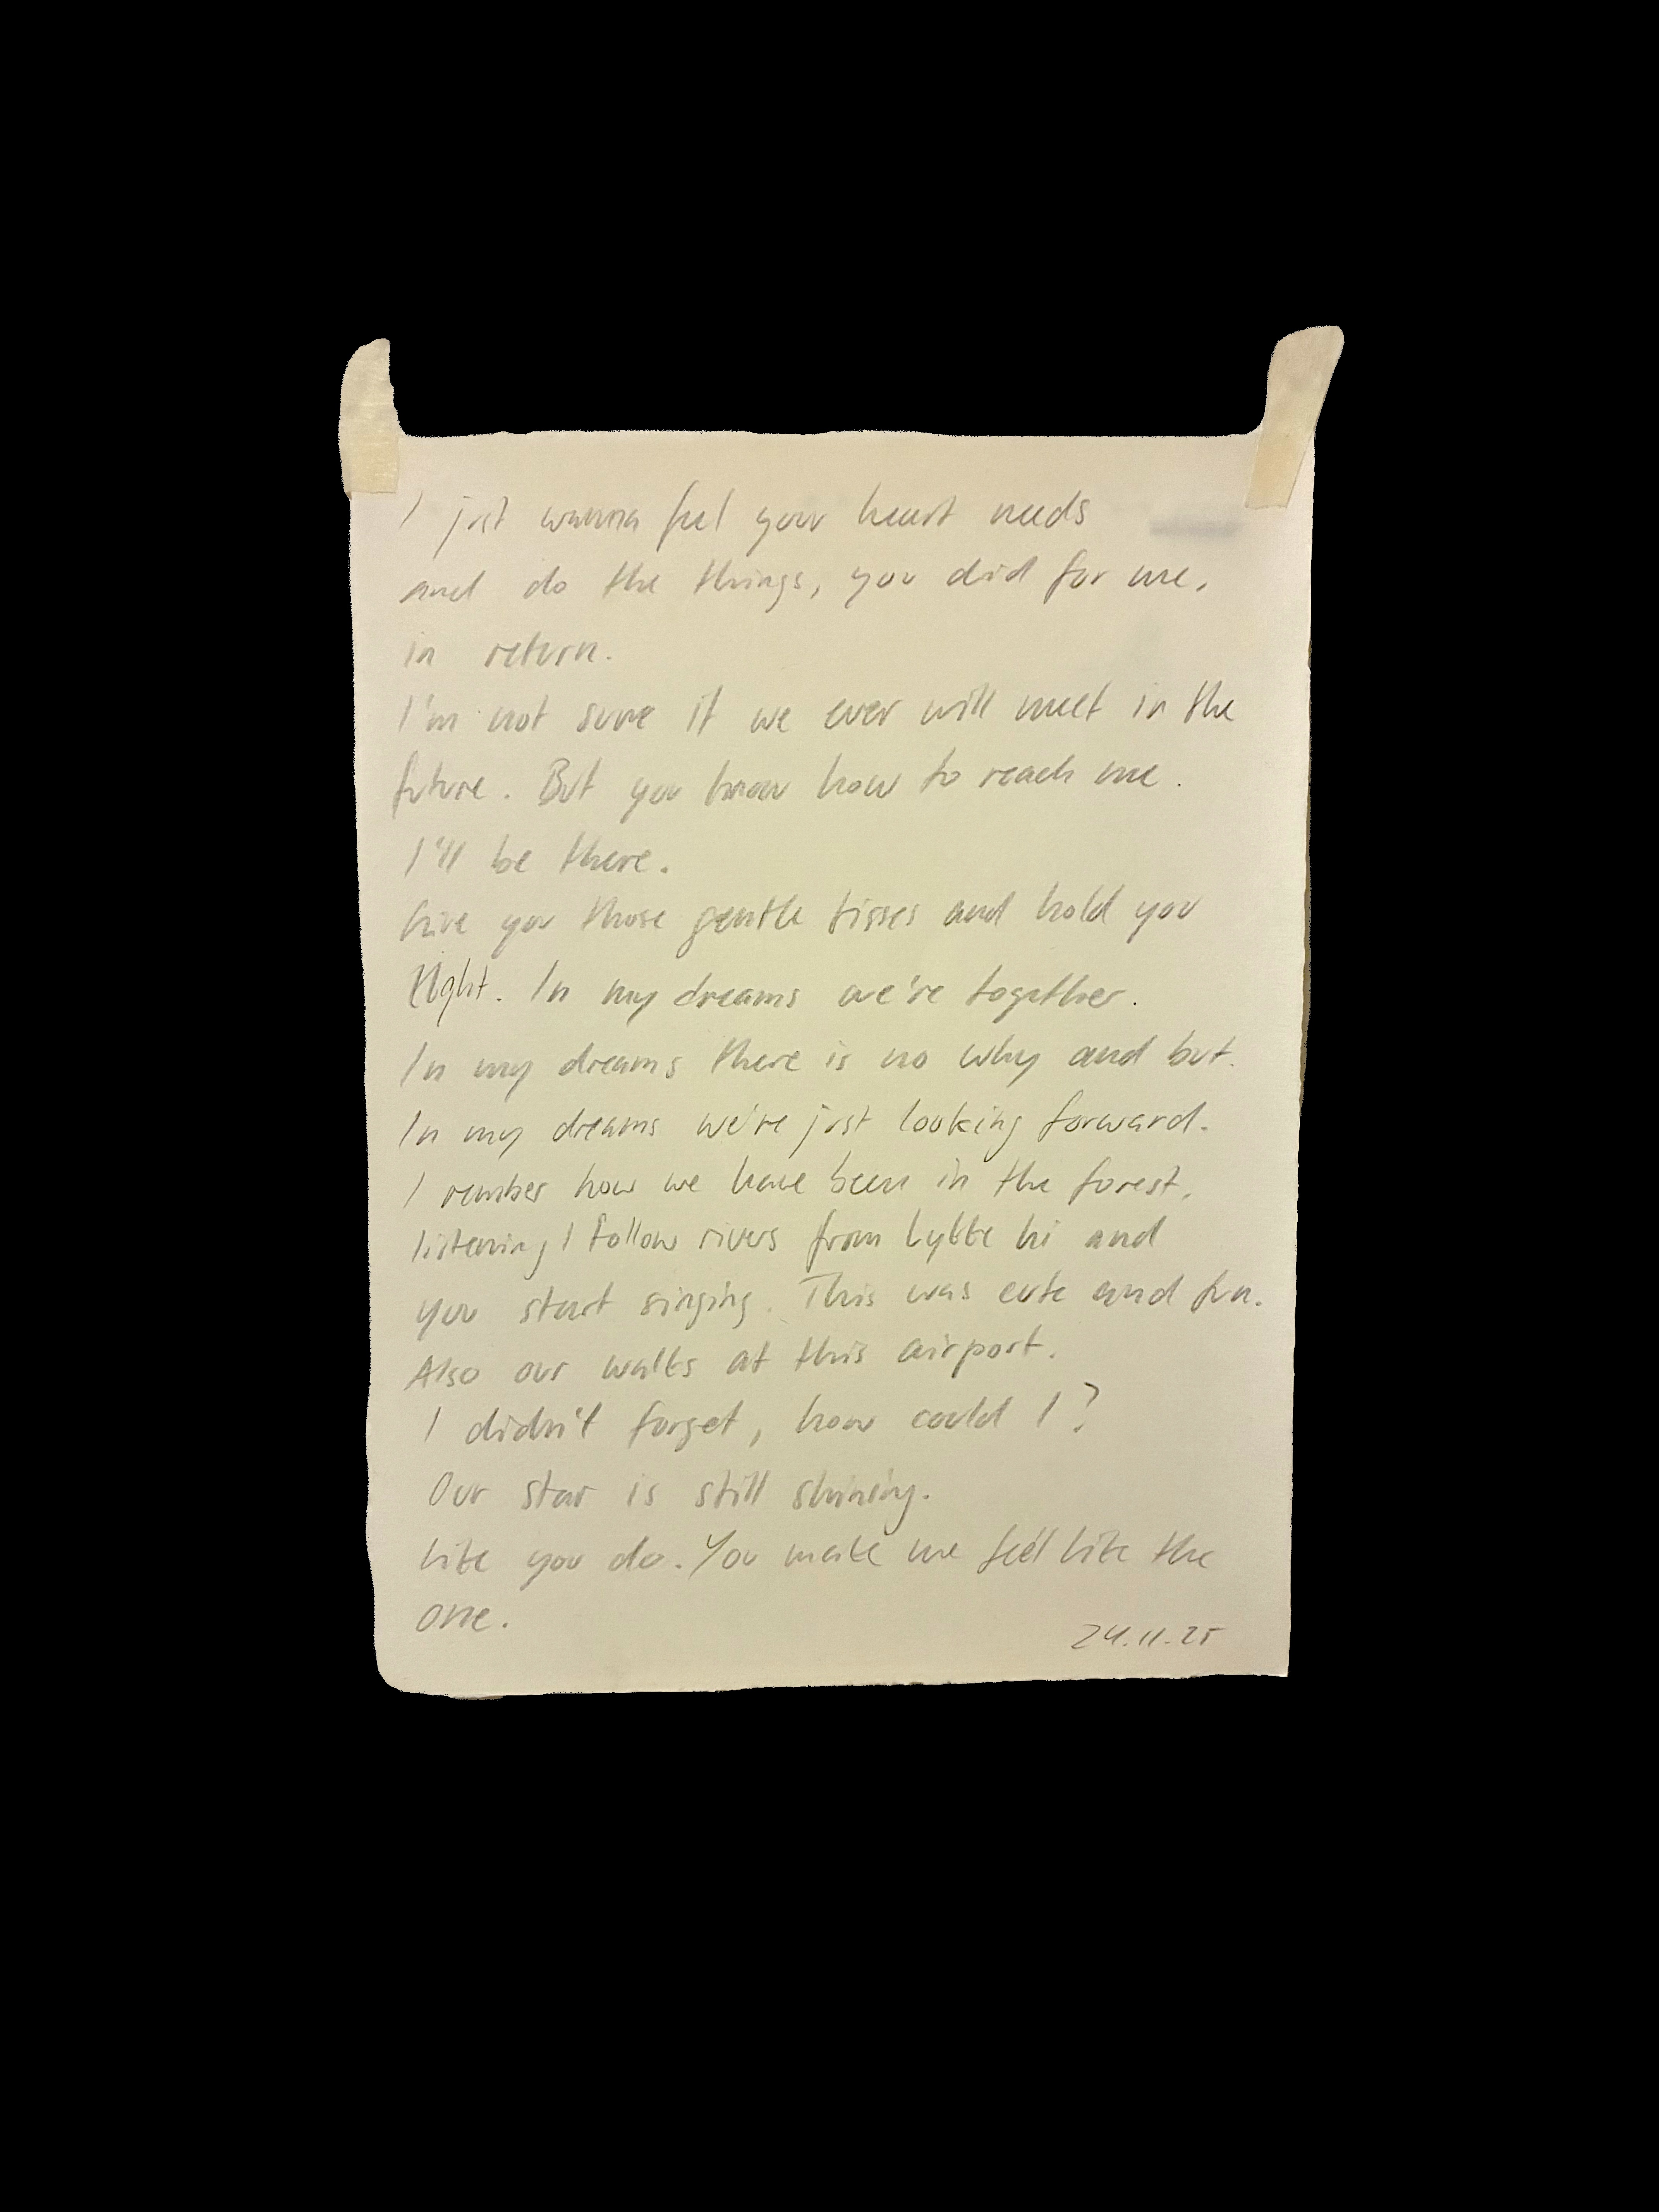 I just wanna feel your heart needs
and do the things, you did for me,
in return.
I'm not sure if we ever will meet in the
future. But you know how to reach me.
I'll be there.
Give you those gentle kisses and hold you
tight. In my dreams we're together.
In my dreams there is no why and but.
In my dreams we're just looking forward.
I rember how we have been in the forest,
listening I follow rivers from Lykke li and
you start singing. This was cute and fun.
Also our walks at this airport.
I didn't forget, how could I?
Our star is still shining.
Like you do. You make me feel like the
one.
24.11.25